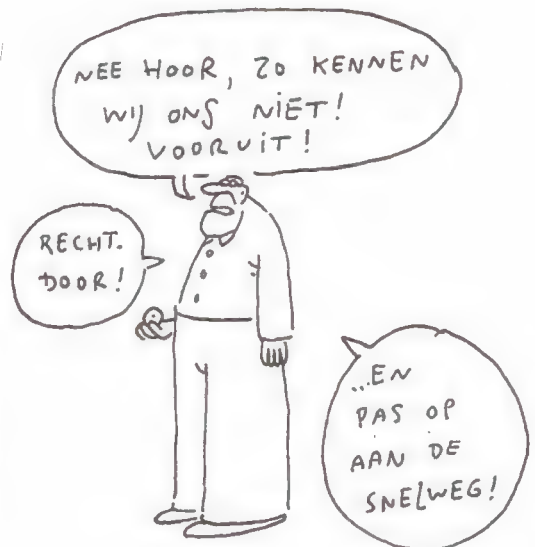 NEE HOOR, ZO KENNEN
WIJ ONS NIET!
VOORUIT!
RECHT.
DOOR!
...EN
PAS OP
AAN DE
SNELWEG!